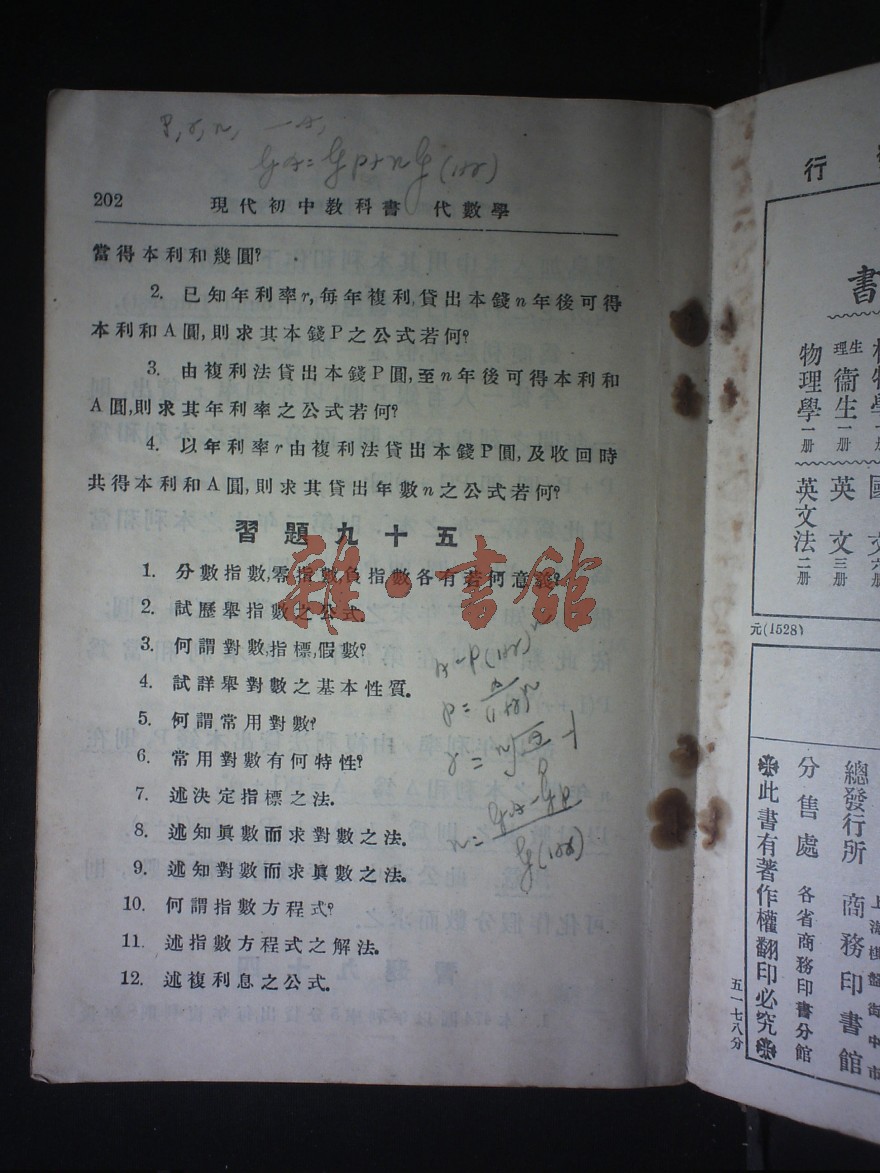 P, r, n, — A,
lg A = lg P + n lg (1+r)
202 現代初中教科書 代數學
當得本利和幾圓?
2. 已知年利率r,每年複利,貸出本錢n年後可得
本利和A圓,則求其本錢P之公式若何?
3. 由複利法貸出本錢P圓,至n年後可得本利和
A圓,則求其年利率之公式若何?
4. 以年利率r由複利法貸出本錢P圓,及收回時
共得本利和A圓,則求其貸出年數n之公式若何?
習題九十五
1. 分數指數,零指數,負指數各有若何意義?
2. 試歷舉指數之公式.
3. 何謂對數,指標,假數?
4. 試詳舉對數之基本性質.
5. 何謂常用對數?
6. 常用對數有何特性?
7. 述決定指標之法.
8. 述知眞數而求對數之法.
9. 述知對數而求眞數之法.
10. 何謂指數方程式?
11. 述指數方程式之解法.
12. 述複利息之公式.
A = P(1+r)^n
P = A/(1+r)^n
r = n√(A/P) − 1
n = (lg A − lg P)/lg(1+r)
雜·書館
行
書
生理衞生一册
物理學一册
國文六册
英文三册
英文法二册
元(1528)
總發行所 商務印書館
分售處 各省商務印書分館
※此書有著作權翻印必究※
五一七八分